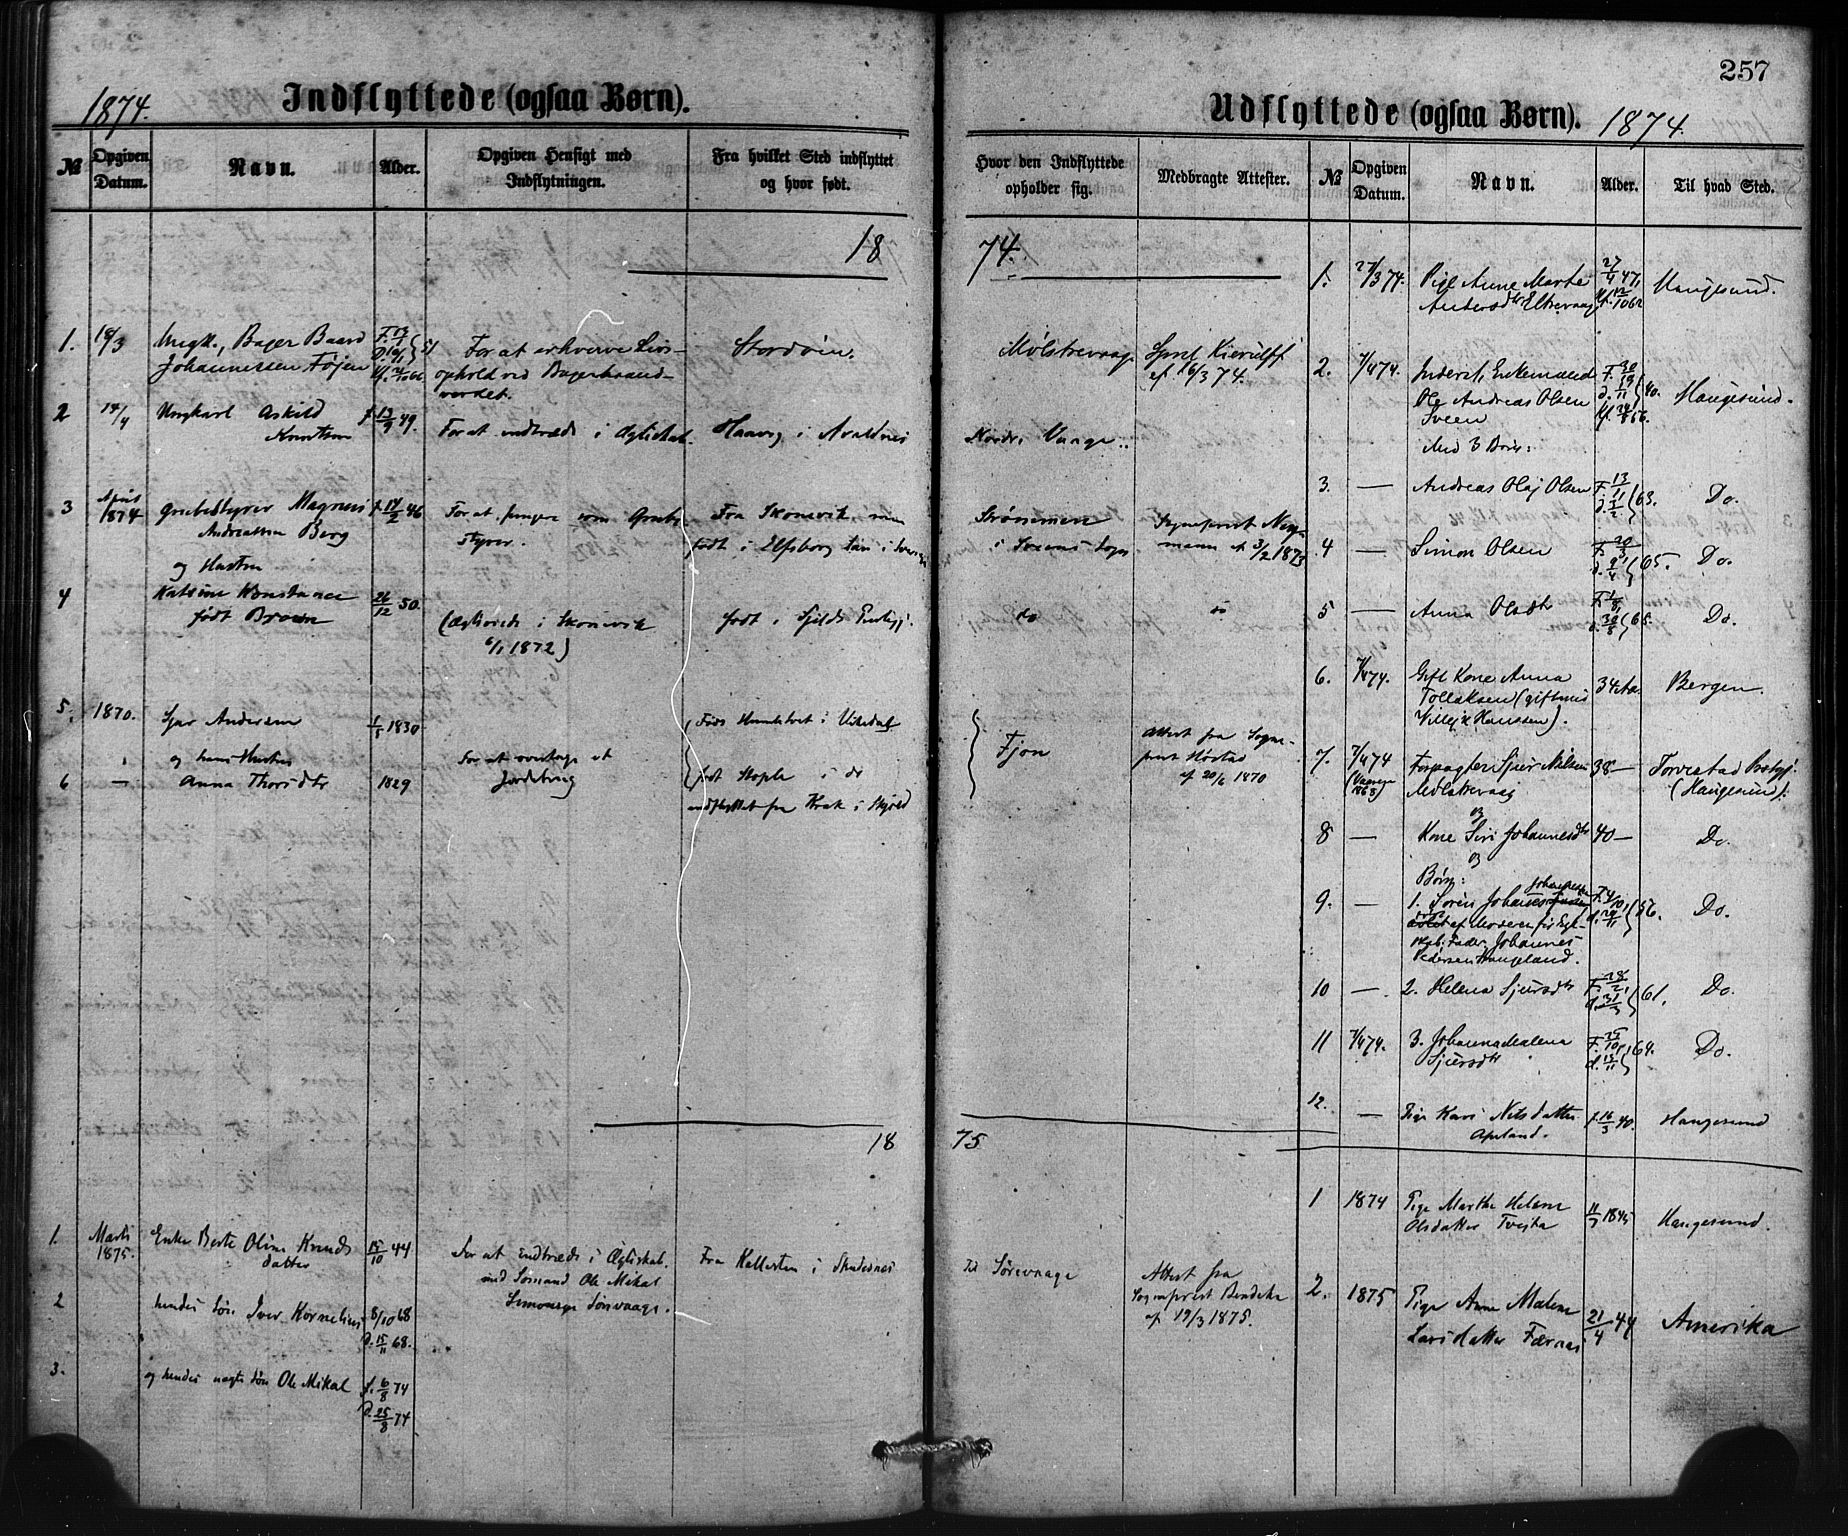 257
1874.
Indflyttede (ogsaa Børn).
Udflyttede (ogsaa Børn). 1874.
№ Opgiven Datum. Navn. Alder. Opgiven Hensigt med Indflytningen. Fra hvilket Sted indflyttet og hvor født.
Hvor den Indflyttede opholder sig. Medbragte Attester. № Opgiven Datum. Navn. Alder. Til hvad Sted.
18 74.
1. 18/3 Ungk., Bager Baard
Johannessen Føjen
For at erhverve Livs-
ophold ved Bagerhaand-
verdet.
Stordøen.
Mølstrevaag
Sprst Kierulff
af 16/3 74.
2 14/4 Ungkarl Askild
Knutsen
f 13/9 49.
For at indtræde i Ægteskab.
Haavig i Avaldsnes
Nordre Vaage.
3 April 1874 Grubebestyrer Magnus
Andreassen Berg
og Hustru
f 14/2 46
For at fungere som Grube-
styrer.
Fra Skonevik men
født i Elfsborg Län i
Strømmen
i Sveens Sogn
Sogneprest
mann af 3/2 1873
4 Katrine Konstance
født Brown
26/12 50.
(Ægteviede i Skonevik
6/1 1872)
født i Fjelds Prstgj.
do do
5. 1870. Sjur Andersen
og hans Hustru
1/5 1830
For at overtage et
Jordebrug
Føds i Vikedal
Fjon
Attest fra Sogne-
prest
af 20/6 1870
6 — Anna Thorsdtr 1829
født Hople i do
indflyttet fra i Skjold
1. 27/3 74. Pige Anne Marta
Andersdtr
27/4 47,
Haugesund.
2. 7/4 74. Inderst, Enkemand
Ole Andreas Olsen
Sveen
Med 3 Børn:
F. 30/
d. 19/11 40.
Haugesund.
3. — Andreas Olaj Olsen F. 13/11 d. 1/2 63. Do.
4 — Simon Olsen F. 20/3, d. 9/4 65. Do.
5 — Anna Olsdtr F. 1/8, d. 30/8 65. Do.
6. 7/4 74. Gift Kone Anna
Tollaksen (gift med
Hanssen).
34 Aar.
Bergen.
7. 7/4 74 Forpagter Sjur Nilsen
Mølstrevaag
38 —
Torvestad Prstgj.
(Haugesund).
8 — og
Kone Siri Johannesdtr 40 — Do.
og
Børn:
9. — 1. Søren Johannes
af Moderen før Egte-
skab. Fader: Johannes
Pedersen Haugeland.
Do.
10 — 2. Helena Sjursdtr F. 28/2, d. 31/3 61. Do.
11 7/4 74. 3. Johanna Malena
Sjursdtr
F. 25/10, d. 13/11 64. Do.
12. — Pige Kari Nilsdatter
Apeland.
f 16/3 40. Haugesund
18 75
1 1874 Pige Marthe Helene
Olsdatter Tveita
11/7 1845 Haugesund.
2. 1875 Pige Anne Malene
Larsdatter Færnæs
21/4 44 Amerika
1. Marts 1875. Enke Berte Oline Knuds
datter
15/10 44
For at indtræde i Ægteskab.
med Sømand Ole Mikal
Simonsen Sørevaage.
Fra Hallersten i Skudesnes
Til Sørevaage
Attest fra
Sogneprest Bendeke
af 19/3 1875.
2 hendes Søn Iver Kornelius 8/10 68
d. 15/11 68.
3. og hendes uægte Søn Ole Mikal f. 6/8 74
d. 25/8 74